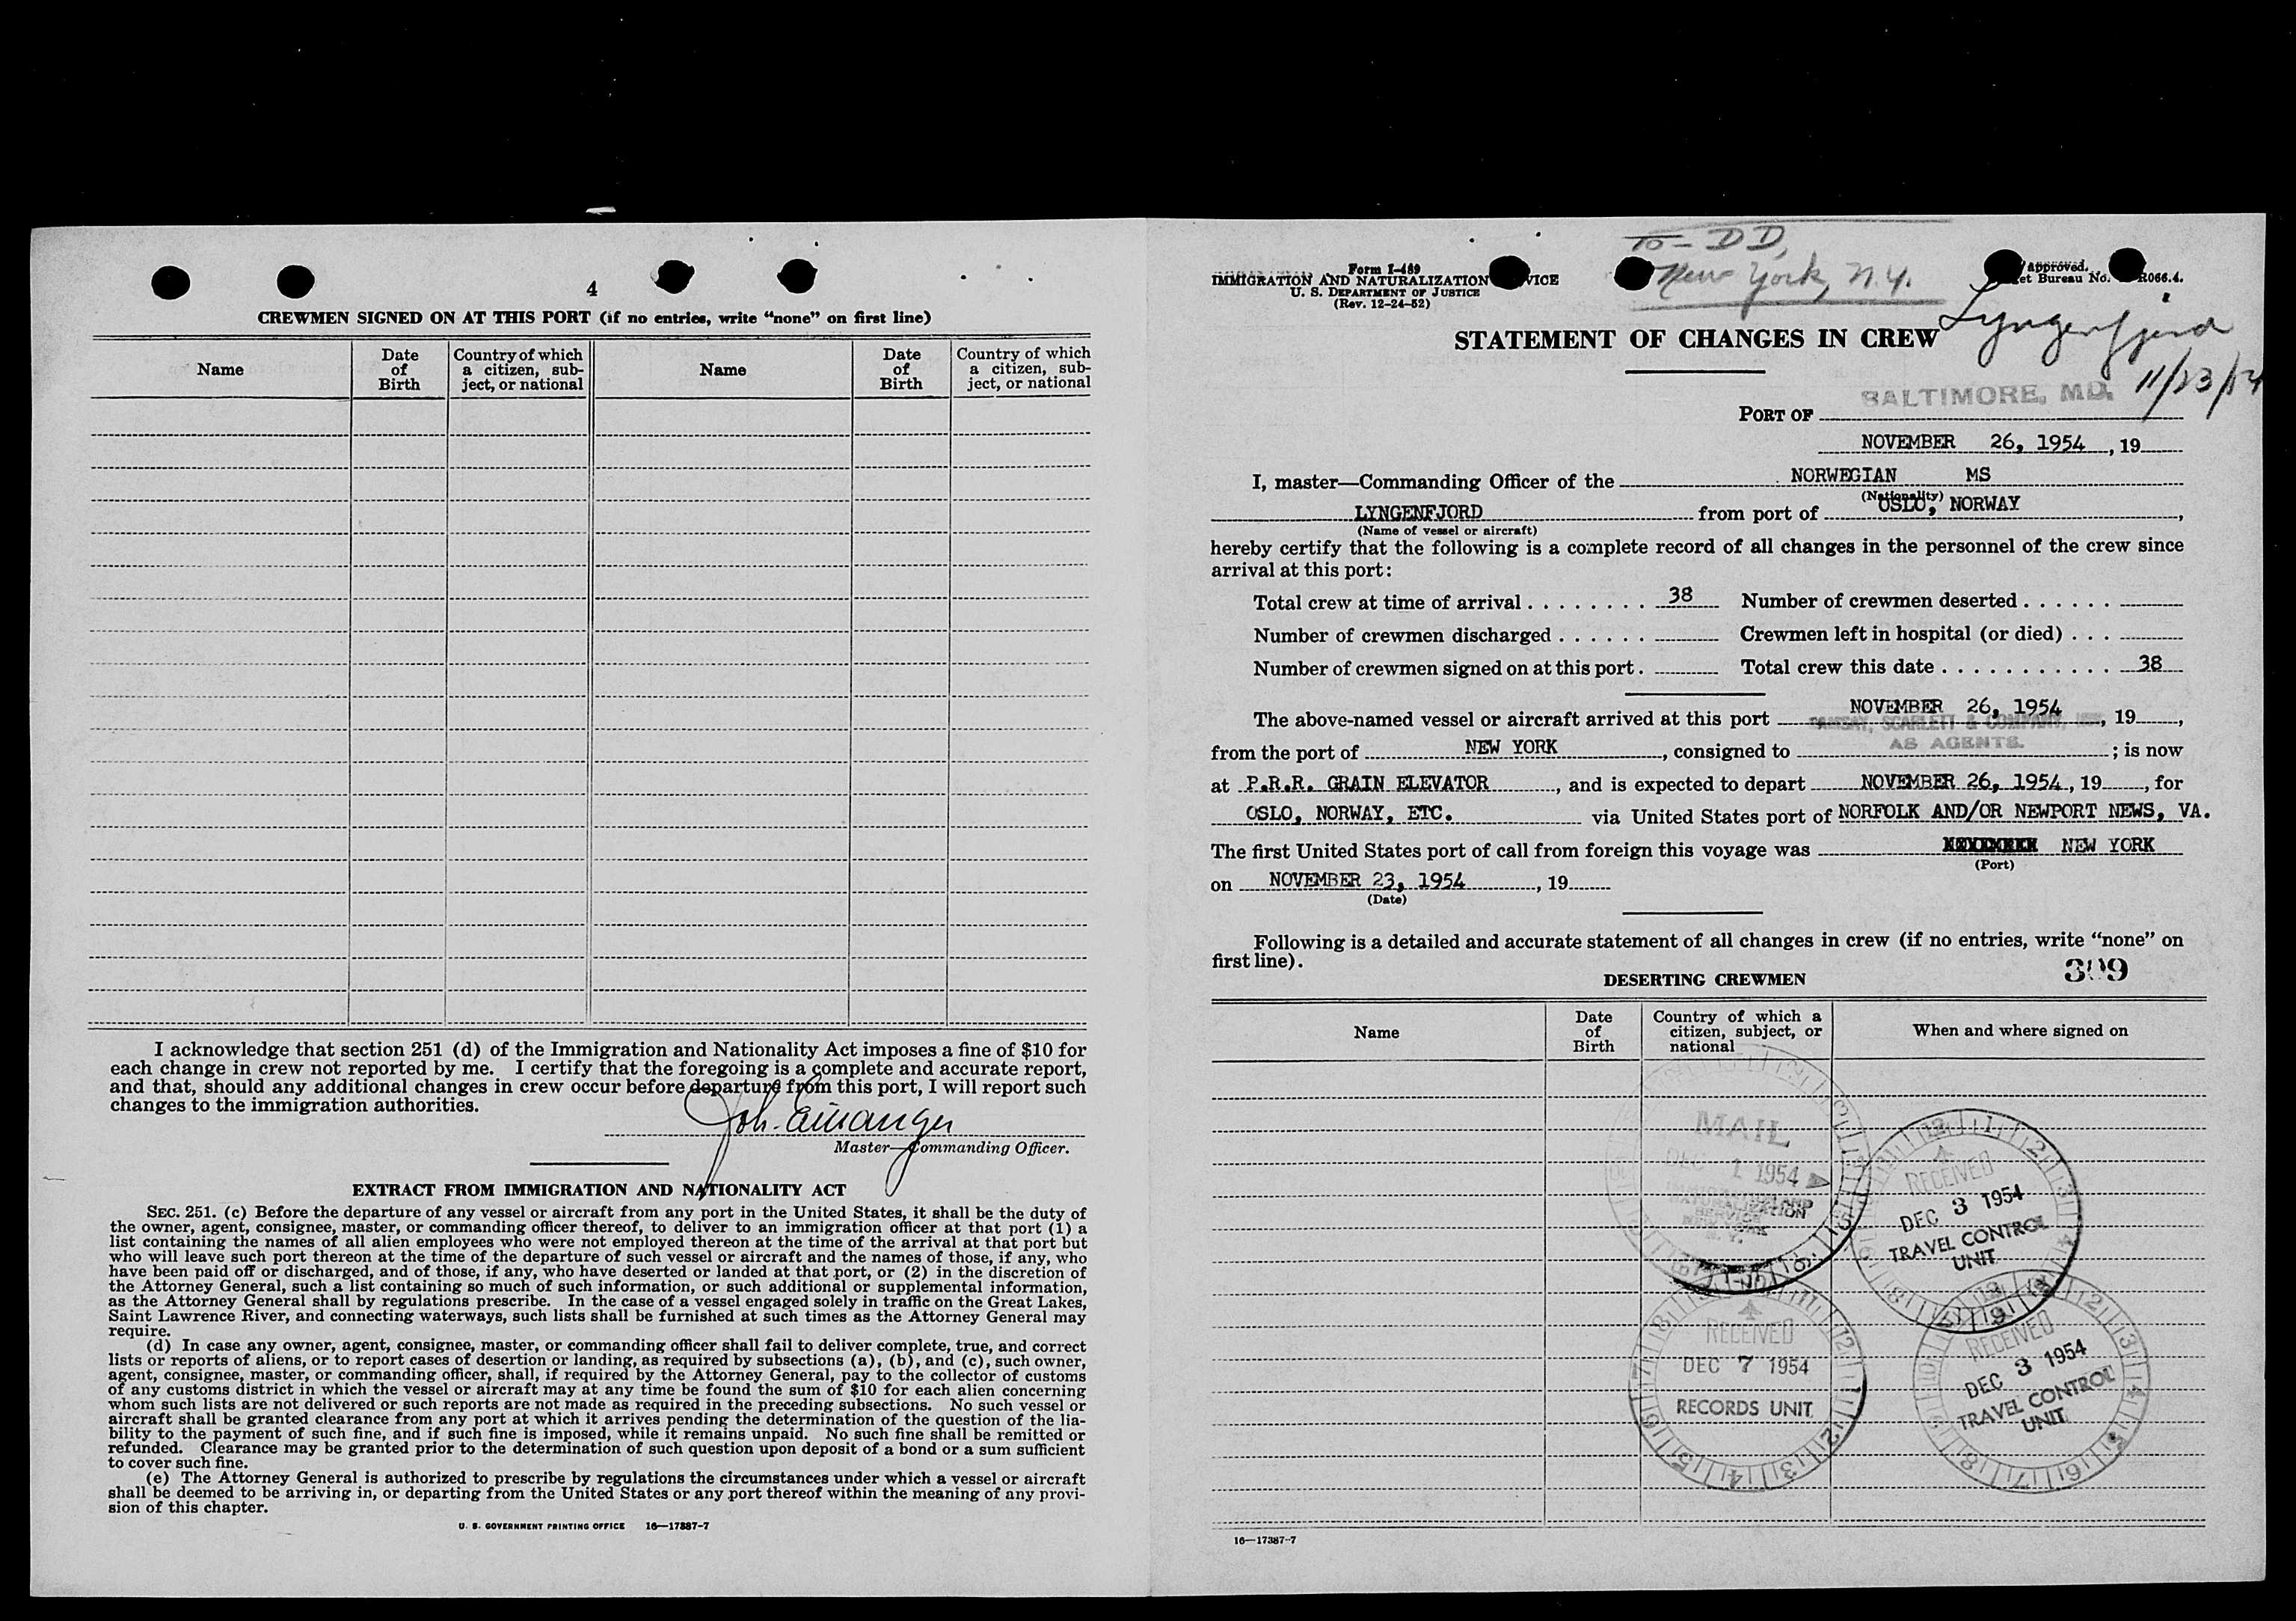 4
CREWMEN SIGNED ON AT THIS PORT (if no entries, write “none” on first line)
Name
Date of Birth
Country of which a citizen, subject, or national
Name
Date of Birth
Country of which a citizen, subject, or national
I acknowledge that section 251 (d) of the Immigration and Nationality Act imposes a fine of $10 for
each change in crew not reported by me. I certify that the foregoing is a complete and accurate report,
and that, should any additional changes in crew occur before departure from this port, I will report such
changes to the immigration authorities.
Joh.
Master—Commanding Officer.
EXTRACT FROM IMMIGRATION AND NATIONALITY ACT
SEC. 251. (c) Before the departure of any vessel or aircraft from any port in the United States, it shall be the duty of
the owner, agent, consignee, master, or commanding officer thereof, to deliver to an immigration officer at that port (1) a
list containing the names of all alien employees who were not employed thereon at the time of the arrival at that port but
who will leave such port thereon at the time of the departure of such vessel or aircraft and the names of those, if any, who
have been paid off or discharged, and of those, if any, who have deserted or landed at that port, or (2) in the discretion of
the Attorney General, such a list containing so much of such information, or such additional or supplemental information,
as the Attorney General shall by regulations prescribe. In the case of a vessel engaged solely in traffic on the Great Lakes,
Saint Lawrence River, and connecting waterways, such lists shall be furnished at such times as the Attorney General may
require.
(d) In case any owner, agent, consignee, master, or commanding officer shall fail to deliver complete, true, and correct
lists or reports of aliens, or to report cases of desertion or landing, as required by subsections (a), (b), and (c), such owner,
agent, consignee, master, or commanding officer, shall, if required by the Attorney General, pay to the collector of customs
of any customs district in which the vessel or aircraft may at any time be found the sum of $10 for each alien concerning
whom such lists are not delivered or such reports are not made as required in the preceding subsections. No such vessel or
aircraft shall be granted clearance from any port at which it arrives pending the determination of the question of the lia-
bility to the payment of such fine, and if such fine is imposed, while it remains unpaid. No such fine shall be remitted or
refunded. Clearance may be granted prior to the determination of such question upon deposit of a bond or a sum sufficient
to cover such fine.
(e) The Attorney General is authorized to prescribe by regulations the circumstances under which a vessel or aircraft
shall be deemed to be arriving in, or departing from the United States or any port thereof within the meaning of any provi-
sion of this chapter.
U. S. GOVERNMENT PRINTING OFFICE 16—17387-7
To - DD,
New York, N.Y.
Form I-489
IMMIGRATION AND NATURALIZATION VICE
U. S. DEPARTMENT OF JUSTICE
(Rev. 12-24-52)
approved.
et Bureau No. R066.4.
Lyngenfjord
11/23/54
STATEMENT OF CHANGES IN CREW
PORT OF BALTIMORE, MD.
NOVEMBER 26, 1954, 19
I, master—Commanding Officer of the NORWEGIAN MS
(Nationality)
LYNGENFJORD from port of OSLO, NORWAY,
(Name of vessel or aircraft)
hereby certify that the following is a complete record of all changes in the personnel of the crew since
arrival at this port:
Total crew at time of arrival . . . . . . . . 38 Number of crewmen deserted . . . . . .
Number of crewmen discharged . . . . . . Crewmen left in hospital (or died) . . .
Number of crewmen signed on at this port . Total crew this date . . . . . . . . . . . 38
The above-named vessel or aircraft arrived at this port NOVEMBER 26, 1954, 19,
RAMSAY, SCARLETT & COMPANY,
from the port of NEW YORK, consigned to AS AGENTS. ; is now
at P.R.R. GRAIN ELEVATOR, and is expected to depart NOVEMBER 26, 1954, 19, for
OSLO, NORWAY, ETC. via United States port of NORFOLK AND/OR NEWPORT NEWS, VA.
The first United States port of call from foreign this voyage was NEW YORK
(Port)
on NOVEMBER 23, 1954, 19
(Date)
Following is a detailed and accurate statement of all changes in crew (if no entries, write “none” on
first line).
309
DESERTING CREWMEN
Name
Date of Birth
Country of which a citizen, subject, or national
When and where signed on
MAIL
DEC 1 1954
RECEIVED
DEC 3 1954
TRAVEL CONTROL
UNIT
RECEIVED
DEC 7 1954
RECORDS UNIT
RECEIVED
DEC 3 1954
TRAVEL CONTROL
UNIT
16—17387-7